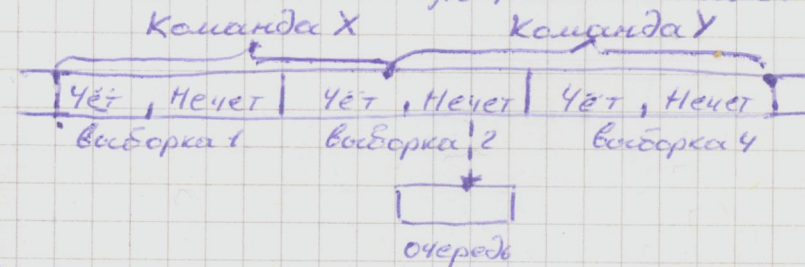 Команда X Команда Y
Чёт Нечет Чёт Нечет Чёт Нечет
выборка 1 выборка 2 выборка 4
очередь